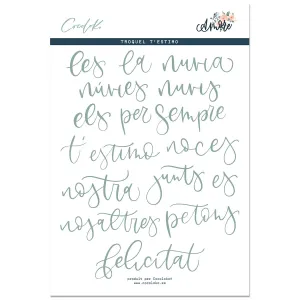 Cocoloko
TROQUEL T'ESTIMO
les la nuvia
núvies nuvis
els per sempre
t'estimo noces
nostra junts es
nosaltres petons
felicitat
www.cocoloko.es